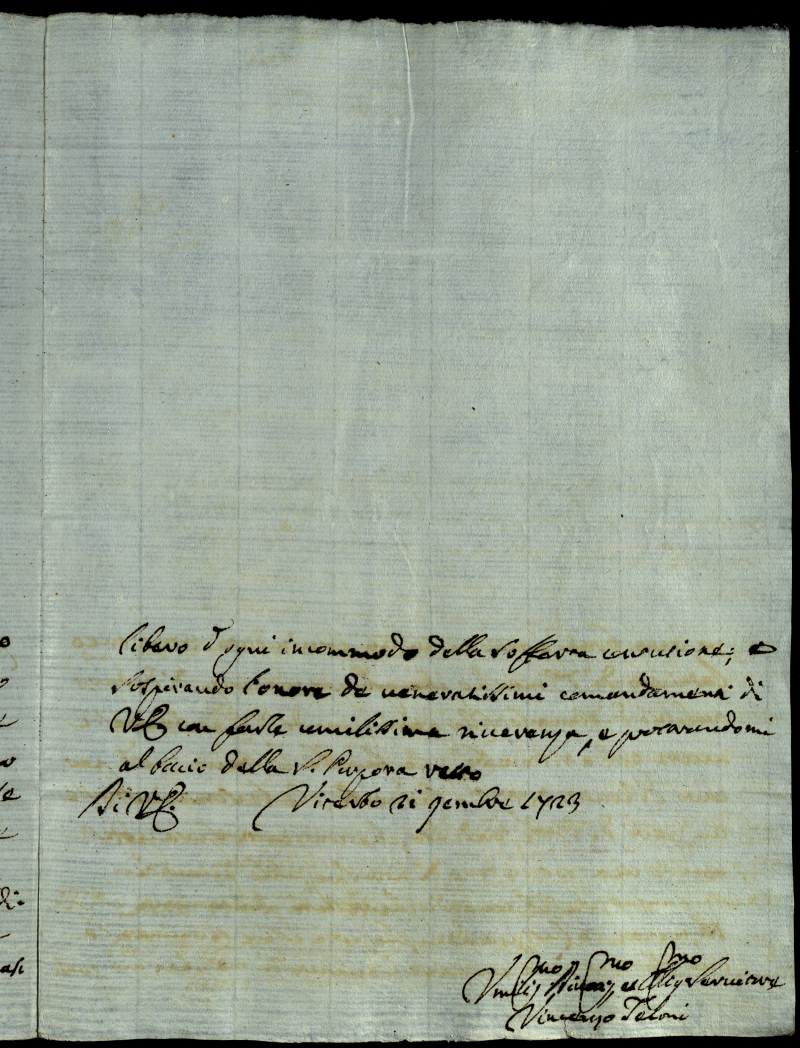 libero d'ogni incommodo della sofferta contusione; e
sospirando l'onore de veneratissimi comandamenti di
VE con farle umilissima riverenza, e prostrandomi
al bacio della S. Porpora resto
Di VE. Viterbo 21 9embre 1723
Umilis.mo et Oblig.mo Servitore
Vincenzo Teloni